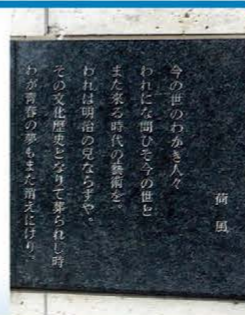 荷風
今の世のわかき人々
われにな問ひそ今の世と
また来る時代の藝術を
われは明治の兒ならずや。
その文化歴史となりて葬られし時
わが青春の夢もまた消えにけり。